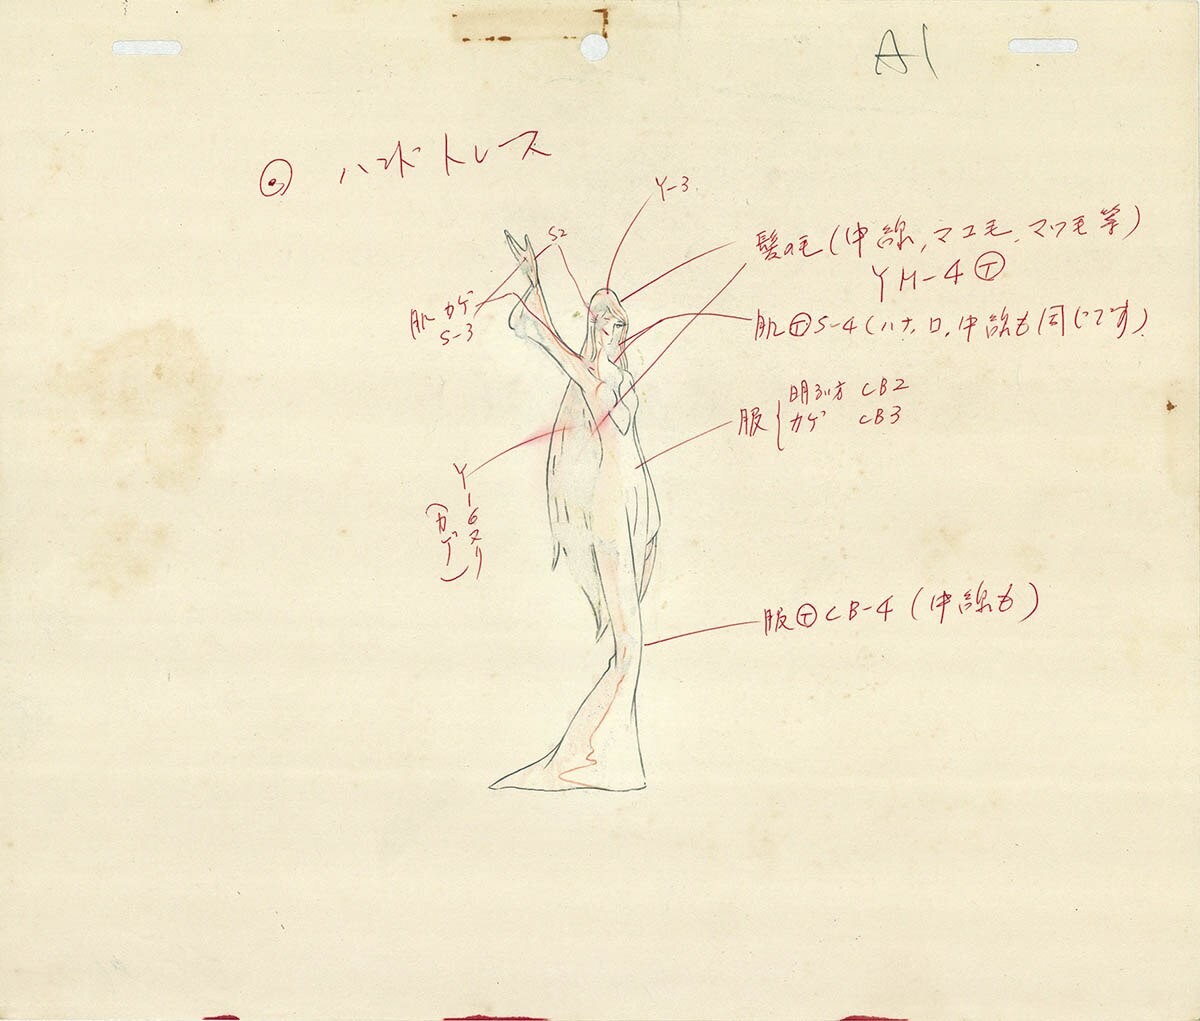 A1
ハンドトレース
Y-3
S2
髪の毛(中線,マユ毛,マツ毛等)
YH-4 Ⓣ
肌カゲ
S-3
肌Ⓣ S-4 (ハナ,口,中線も同じです)
服
明るい方 CB2
カゲ CB3
Y-6ヌリ
(カゲ)
服Ⓣ CB-4 (中線も)